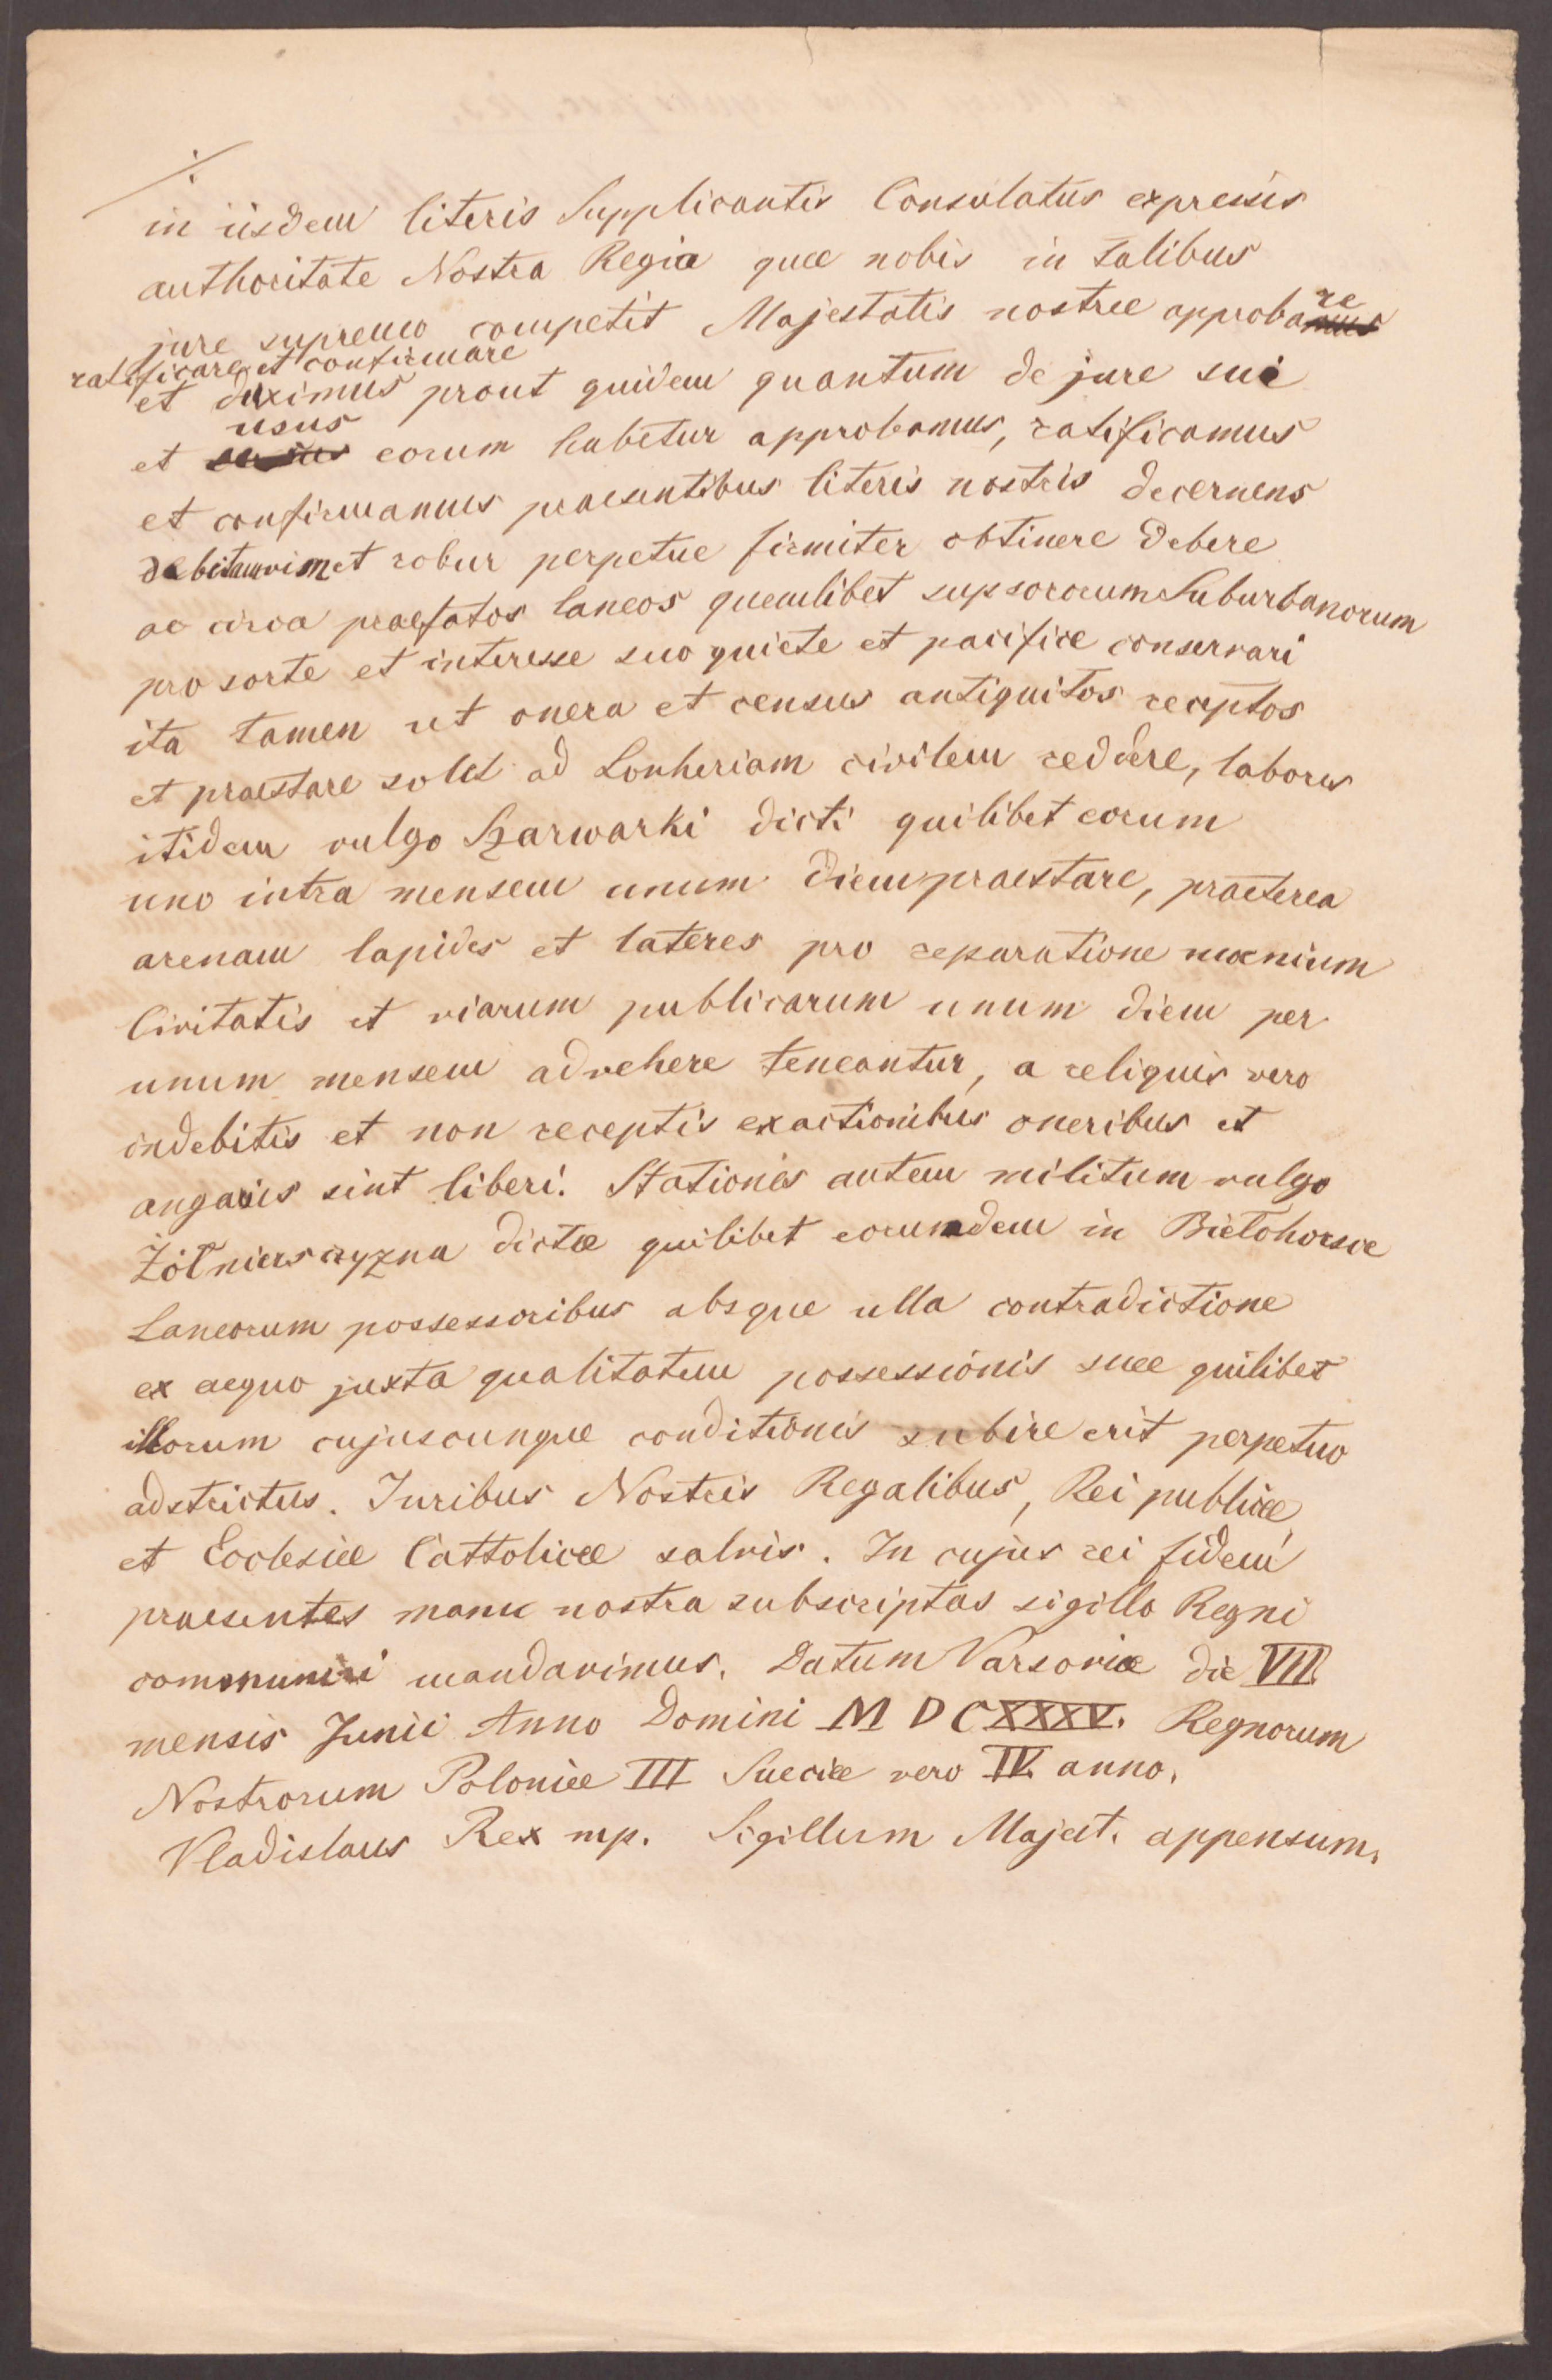 ./.
in iisdem literis Supplicantis Consulatus expressis
authoritate Nostra Regia quae nobis in talibus
jure supremo competit Majestatis nostrae approbare
ratificare et confirmare
et duximus prout quidem quantum de jure sui
et usus eorum habetur approbamus, ratificamus
et confirmamus praesentibus literis nostris decernens
debitam vim et robur perpetue firmiter obtinere debere
ac circa praefatos laneos quemlibet Suburbanorum
pro sorte et interesse suo quiete et pacifice conservari
ita tamen ut onera et census antiquitos receptos
et praestare solet ad Lonheriam civilem reddere, labores
itidem vulgo Szarwarki dicti quilibet eorum
uno intra mensem unum diem praestare, praeterea
arenam lapides et lateres pro reparatione moenium
Civitatis et viarum publicarum unum diem per
unum mensem advehere teneantur, a reliquis vero
indebitis et non receptis exactionibus oneribus et
angariis sint liberi. Stationes autem militum vulgo
Żołnierszczyzna dictae quilibet eorumdem in Biełohorsce
Laneorum possessoribus absque ulla contradictione
ex aequo juxta qualitatem possessionis suae quilibet
illorum cujuscunque conditionis subire erit perpetuo
adstrictus. Juribus Nostris Regalibus, Rei publicae,
et Ecclesiae Cattolicae salvis. In cujus rei fidem
praesentes manu nostra subscriptas sigillo Regni
communiri mandavimus. Datum Varsoviae die VII.
mensis Junii Anno Domini M D C XXXV. Regnorum
Nostrorum Poloniae III Sueciae vero IV. anno.
Vladislaus Rex mp. Sigillum Majest. appensum.